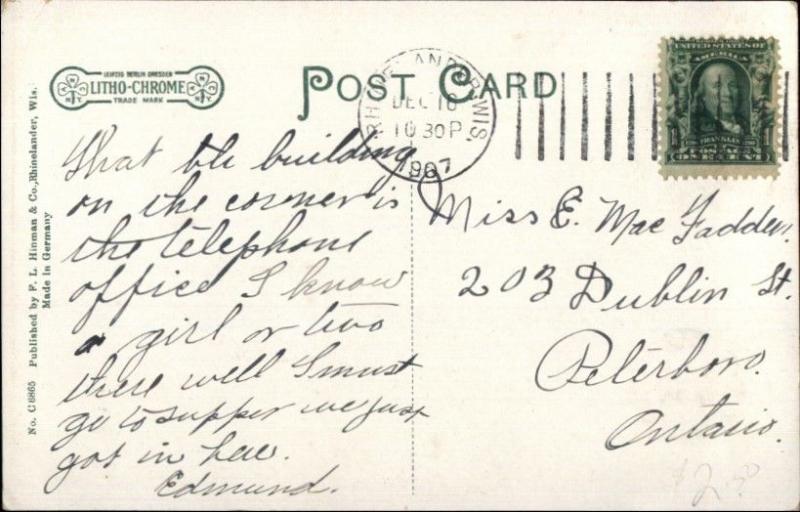 LEIPZIG BERLIN DRESDEN
LITHO-CHROME
TRADE MARK
N.Y.
N.Y.
POST CARD
RHINELANDER, WIS.
DEC 10
10 30 P
1907
UNITED STATES OF
AMERICA
FRANKLIN
ONE CENT
That bl. building
on the corner is
the telephone
office I know
a girl or two
there well I must
go to supper we just
got in here.
Edmund.
Miss E. Mac Fadden.
203 Dublin St.
Peterboro.
Ontario.
$2.50
No. C 6865 Published by F. L. Hinman & Co., Rhinelander, Wis.
Made in Germany